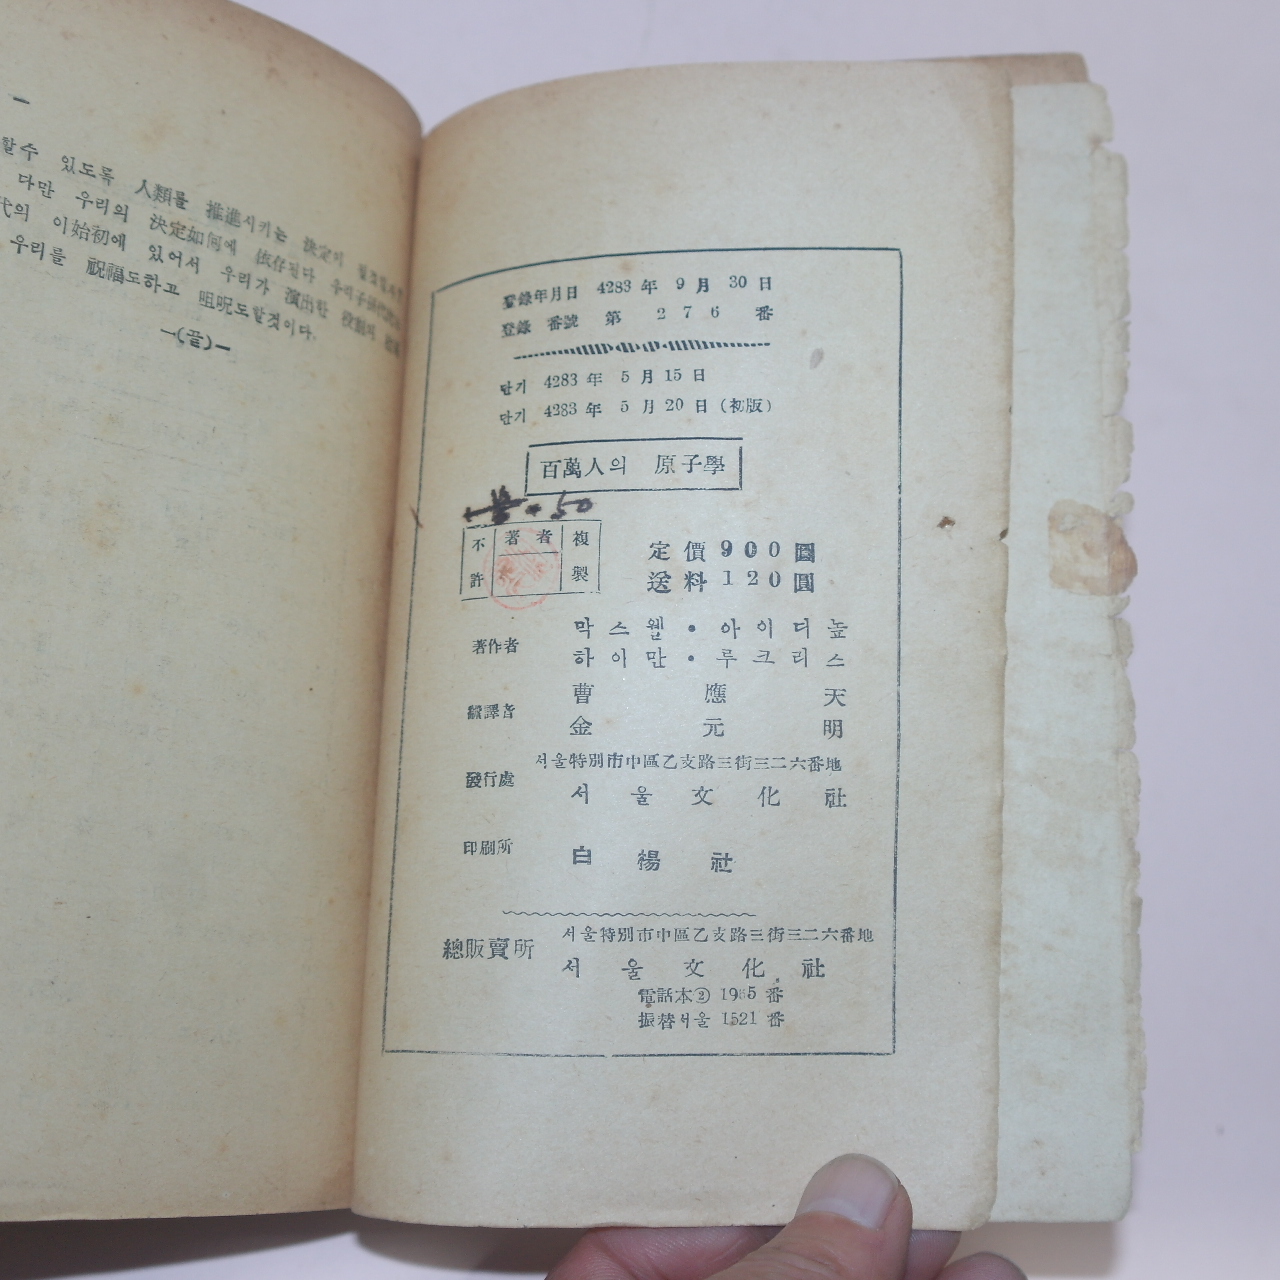 할수 있도록 人類를 推進시키는 決定이
다만 우리의 決定如何에 依存된다
代의 이始初에 있어서 우리가 演出한
우리를 祝福도하고 咀呪도할것이다.
—(끝)—
登錄年月日 4283 年 9 月 30 日
登錄 番號 第 2 7 6 番
단기 4283 年 5 月 15 日
단기 4283 年 5 月 20 日 (初版)
百萬人의 原子學
不許 著者 複製
定價 900 圓
送料 120 圓
著作者 막스웰・아이디높
하이만・루크리스
飜譯者 曹應天
金元明
發行處 서울特別市中區乙支路三街三二六番地
서울文化社
印刷所 白楊社
總販賣所 서울特別市中區乙支路三街三二六番地
서울文化社
電話本② 番
振替서울 1521 番